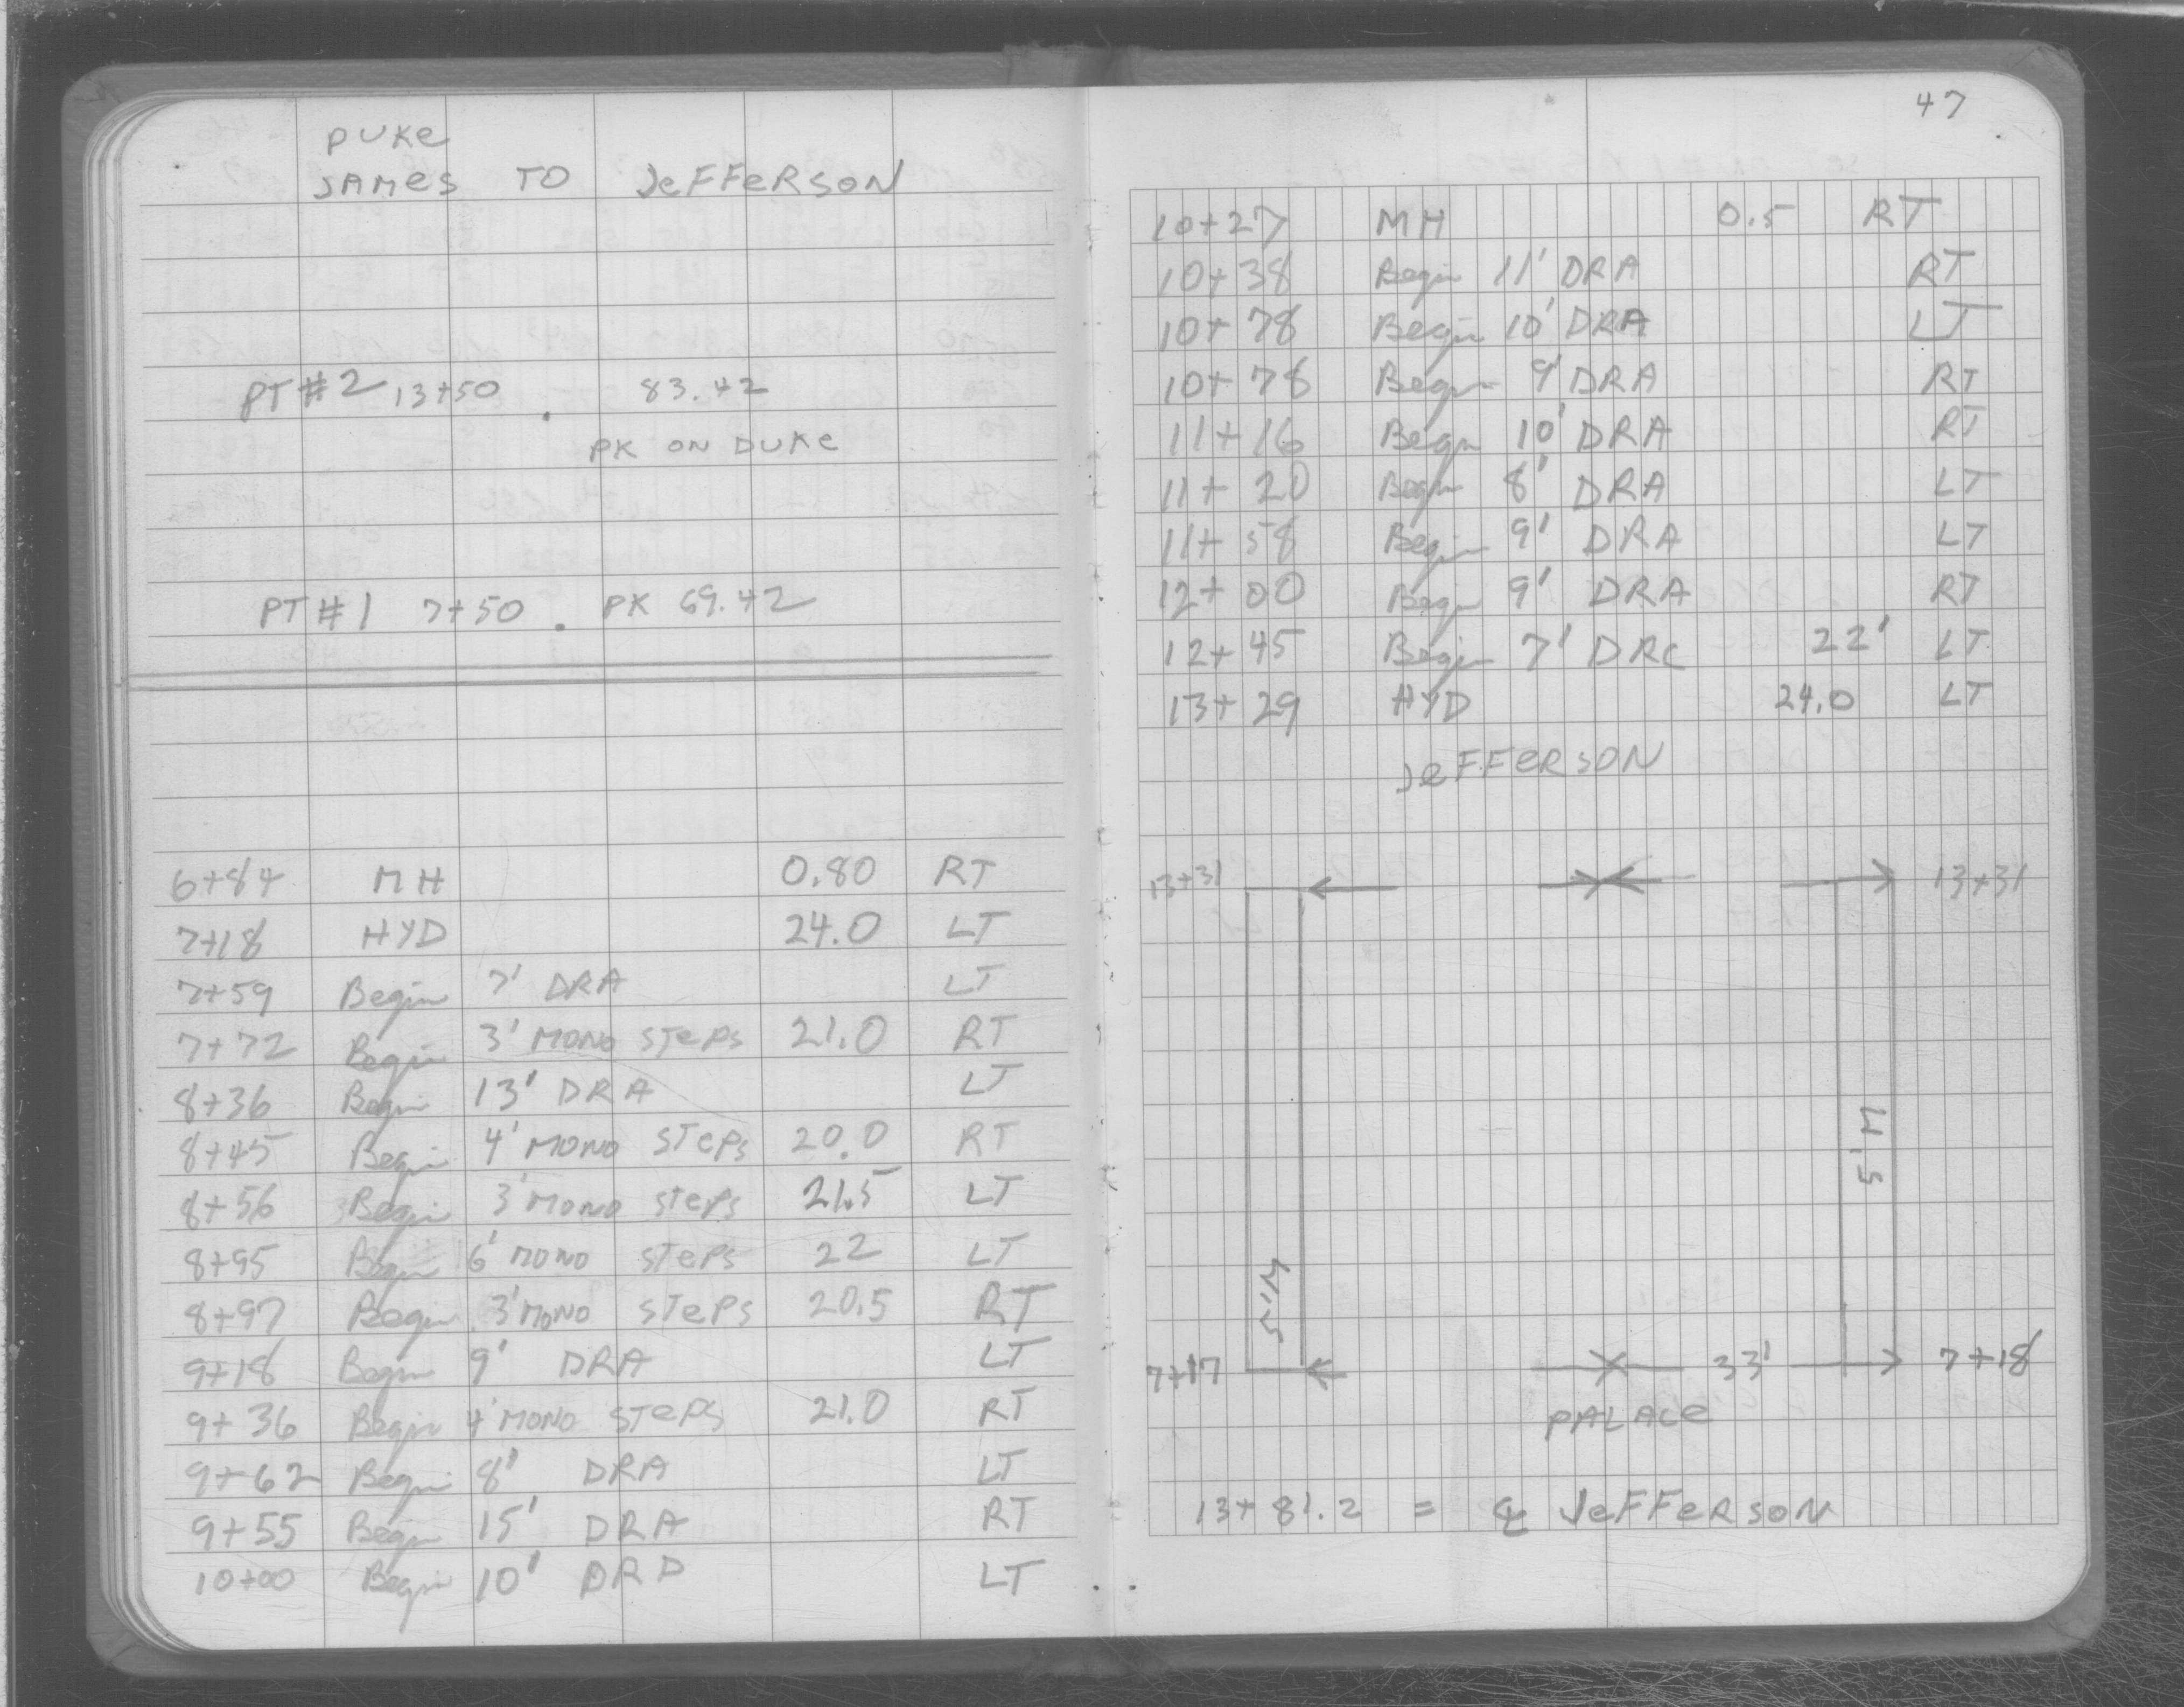 DUKE
JAMES TO JEFFERSON
PT #2 13+50 . 83.42
PK ON DUKE
PT #1 7+50 . PK 69.42
6+84 MH 0.80 RT
7+18 HYD 24.0 LT
7+59 Begin 7' DRA LT
7+72 Begin 3' MONO STEPS 21.0 RT
8+36 Begin 13' DRA LT
8+45 Begin 4' MONO STEPS 20.0 RT
8+56 Begin 3' MONO STEPS 21.5 LT
8+95 Begin 6' MONO STEPS 22 LT
8+97 Begin 3' MONO STEPS 20.5 RT
9+18 Begin 9' DRA LT
9+36 Begin 4' MONO STEPS 21.0 RT
9+62 Begin 8' DRA LT
9+55 Begin 15' DRA RT
10+00 Begin 10' DRD LT
47
10+27 MH 0.5 RT
10+38 Begin 11' DRA RT
10+78 Begin 10' DRA LT
10+78 Begin 9' DRA RT
11+16 Begin 10' DRA RT
11+20 Begin 8' DRA LT
11+58 Begin 9' DRA LT
12+00 Begin 9' DRA RT
12+45 Begin 7' DRC 22' LT
13+29 HYD 24.0 LT
JEFFERSON
13+31 13+31
5'M
5'M
7+17 33' 7+18
PALACE
13+81.2 = ℄ JEFFERSON